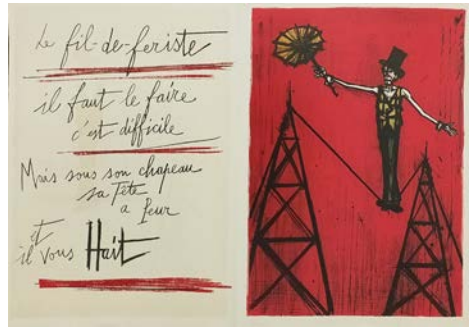 Le fil-de-feriste
il faut le faire
c'est difficile
Mais sous son chapeau
sa Tête
a peur
et
il vous Hait